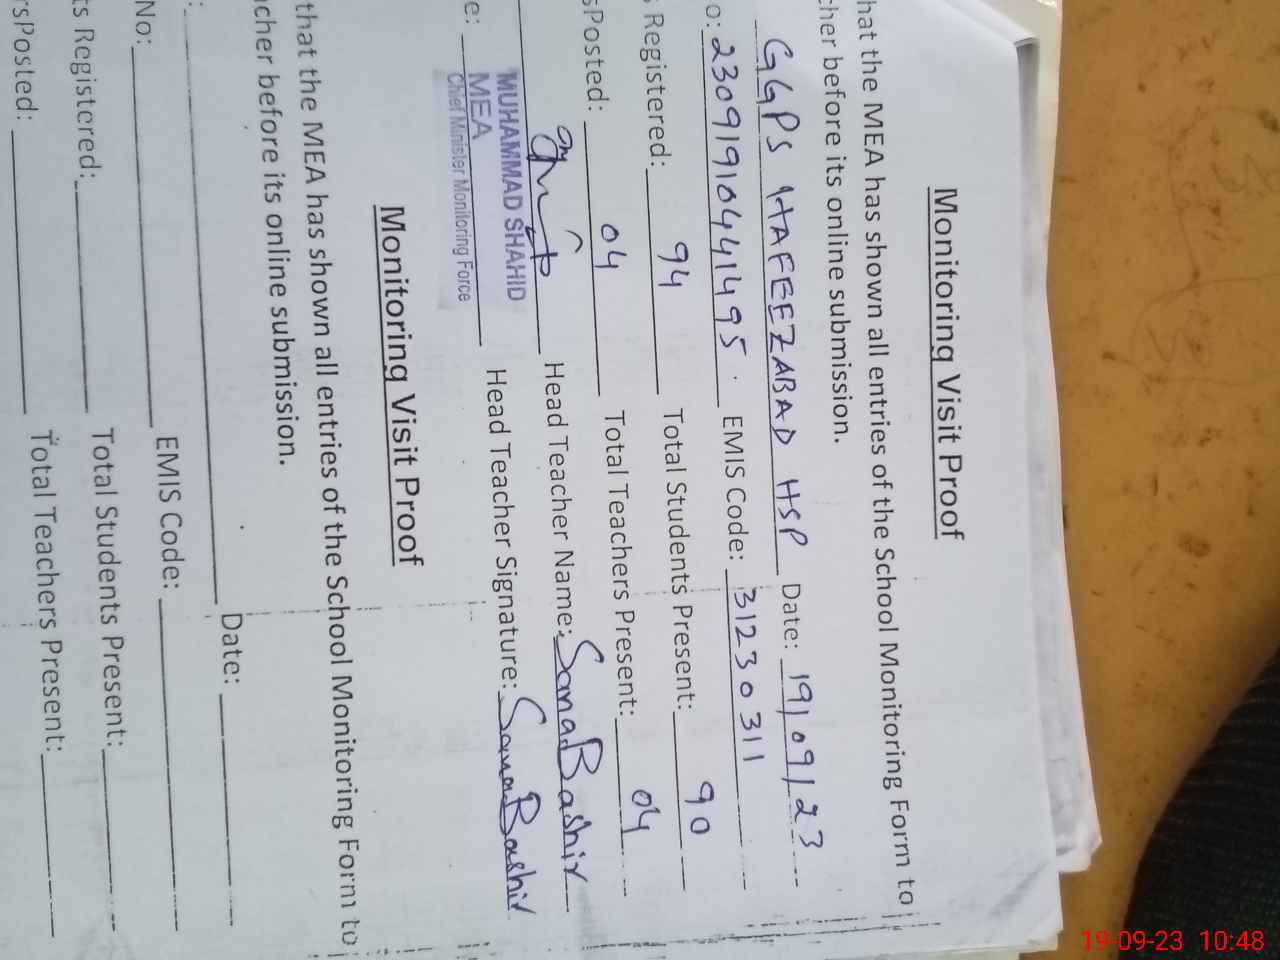 Monitoring Visit Proof
hat the MEA has shown all entries of the School Monitoring Form to
cher before its online submission.
GGPS HAFEEZABAD HSP Date: 19/09/23
o: 2309191044 1495. EMIS Code: 31230311
s Registered: 94 Total Students Present: 90
sPosted: 04 Total Teachers Present: 04
Head Teacher Name: Sana Bashir
MUHAMMAD SHAHID
e: MEA Head Teacher Signature: Sana Bashir
Chief Minister Monitoring Force
Monitoring Visit Proof
that the MEA has shown all entries of the School Monitoring Form to
acher before its online submission.
: Date:
No: EMIS Code:
ts Registered: Total Students Present:
rsPosted: Total Teachers Present:
19-09-23 10:48